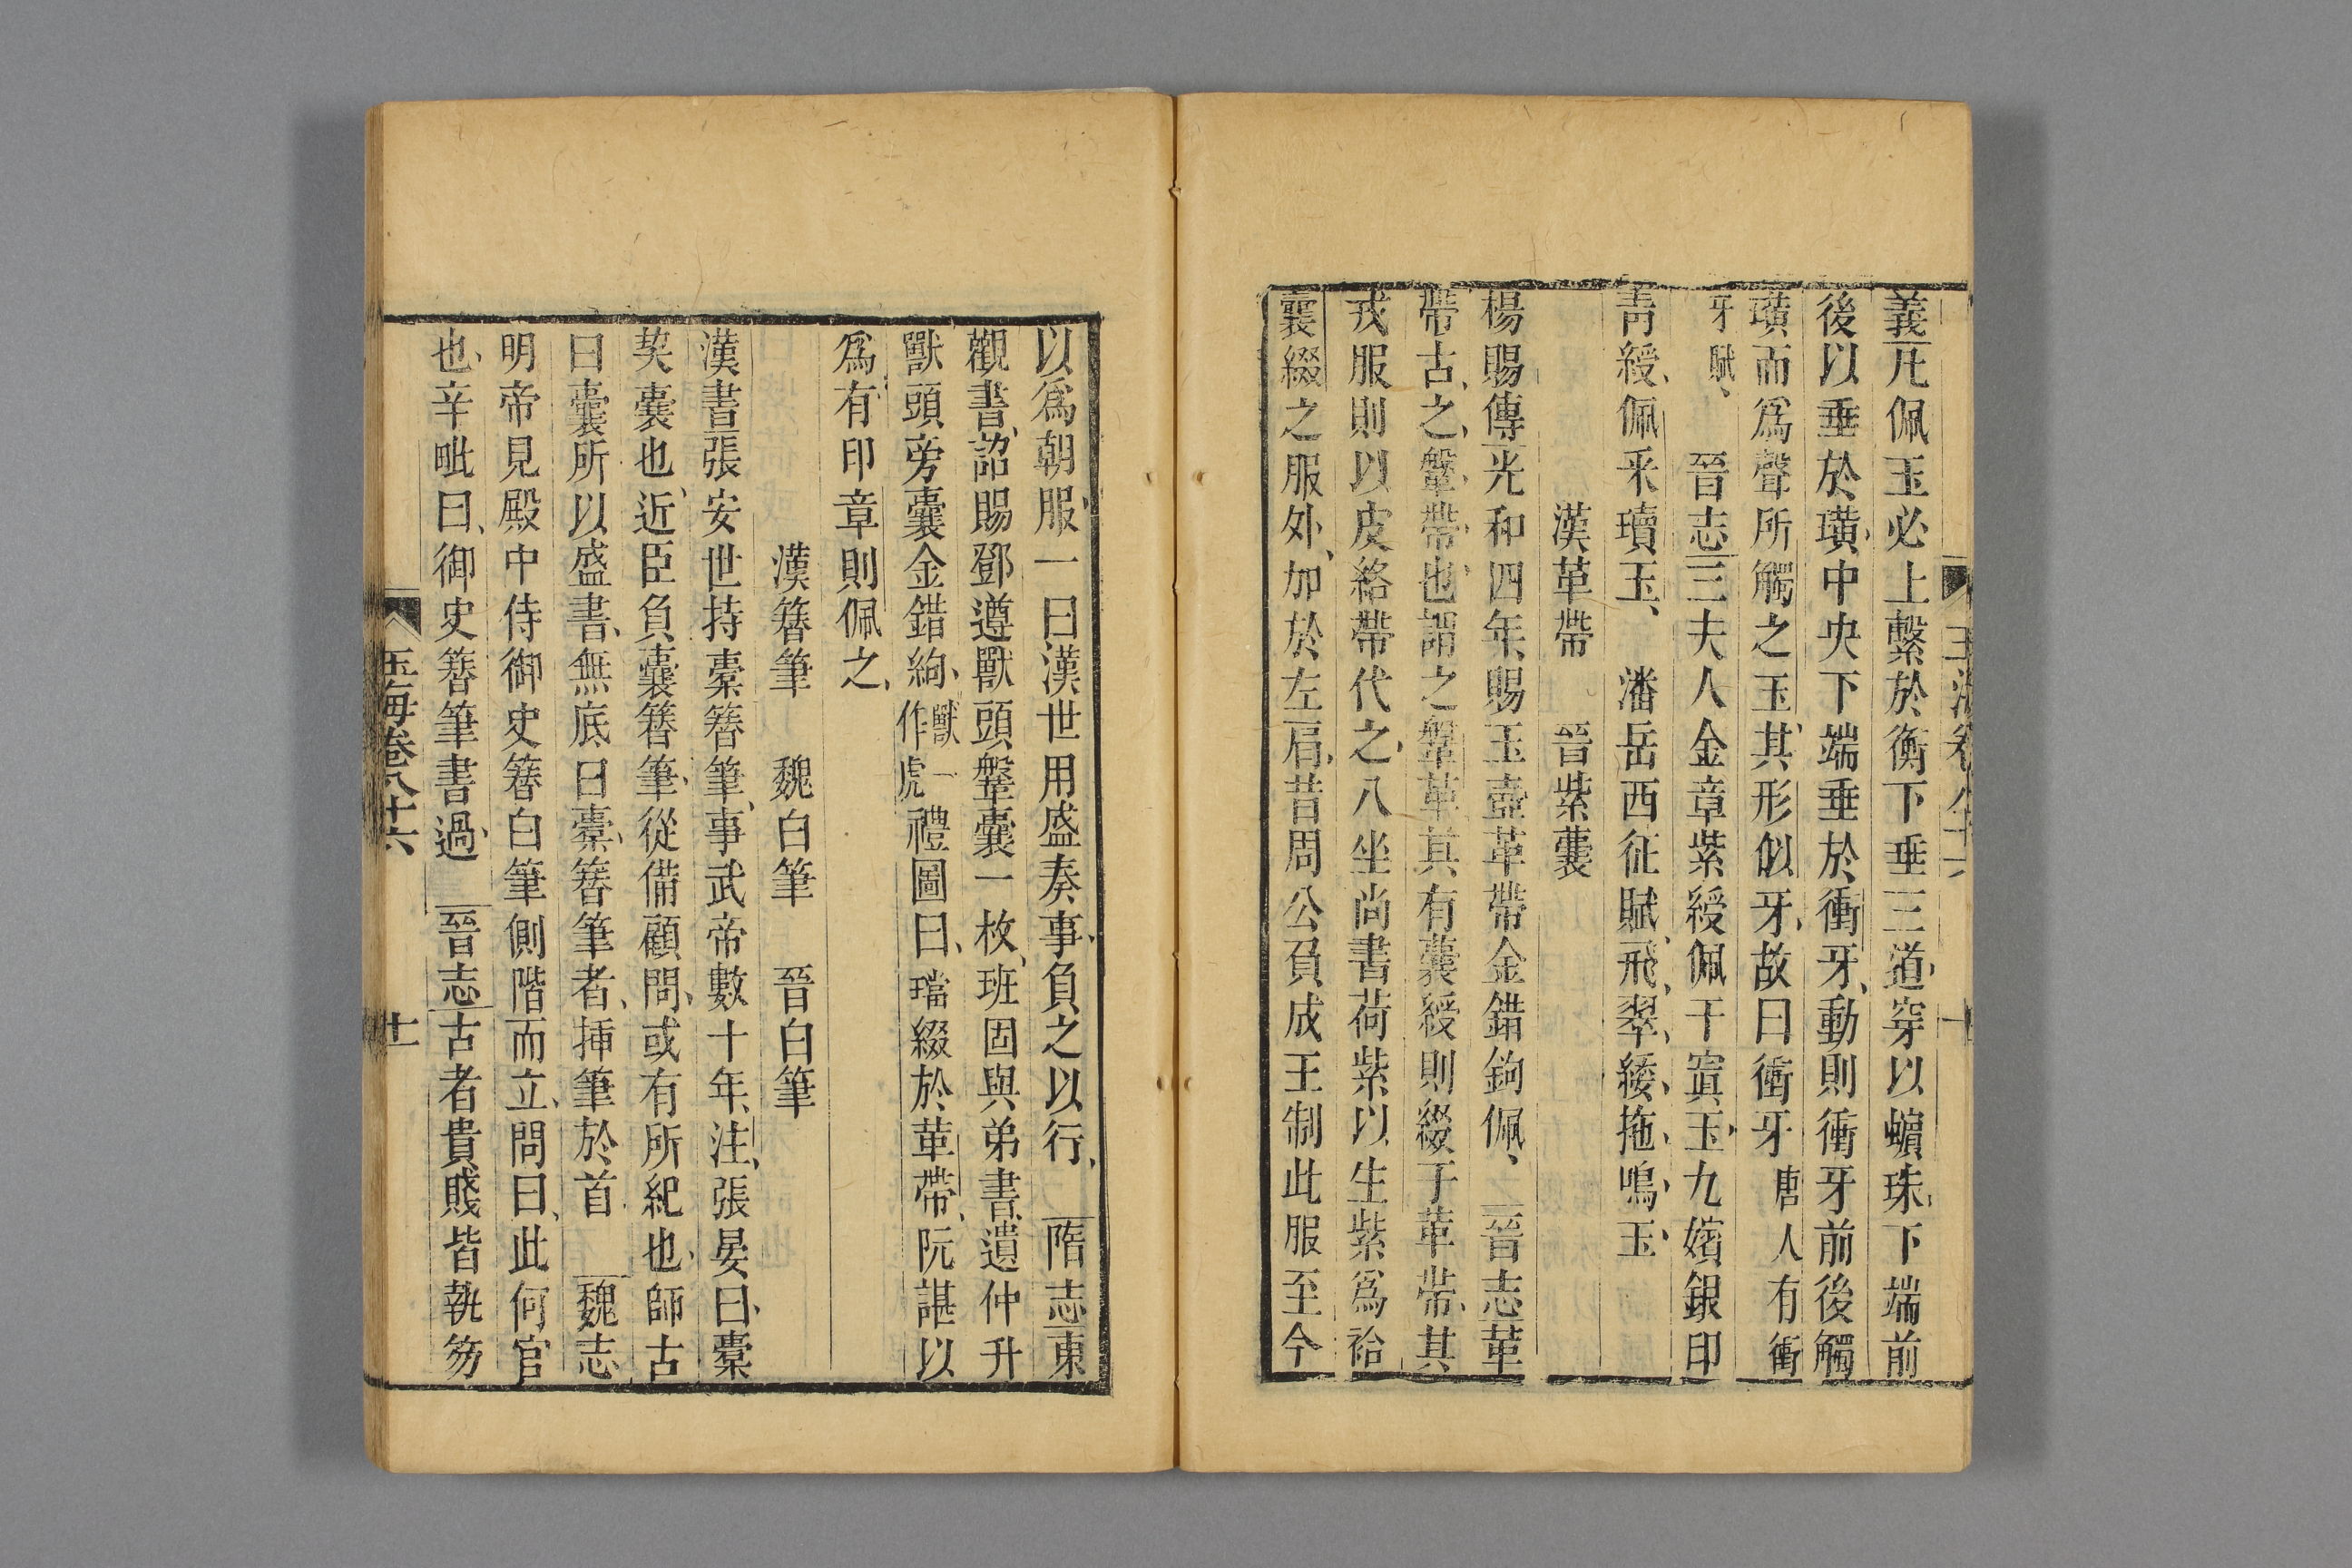 玉海卷八十六 十
義凡佩玉必上繫於衡下垂三道穿以蠙珠下端前
後以垂於璜中央下端垂於衝牙動則衝牙前後觸
璜而爲聲所觸之玉其形似牙故曰衝牙唐人有衝
牙賦、 晉志三夫人金章紫綬佩于窴玉九嬪銀印
靑綬佩采瓄玉、 潘岳西征賦飛翠緌拖鳴玉
漢革帶 晉紫囊
楊賜傳光和四年賜玉壺革帶金錯鉤佩、 晉志革
帶古之鞶帶也謂之鞶革其有囊綬則綴于革帶其
戎服則以皮絡帶代之八坐尚書荷紫以生紫爲袷
囊綴之服外加於左肩昔周公負成王制此服至今
以爲朝服一曰漢世用盛奏事負之以行 隋志東
觀書詔賜鄧遵獸頭鞶囊一枚班固與弟書遺仲升
獸頭旁囊金錯絇獸一作虎禮圖曰璫綴於革帶阮諶以
爲有印章則佩之
漢簪筆 魏白筆 晉白筆
漢書張安世持橐簪筆事武帝數十年注張晏曰橐
契囊也近臣負囊簪筆從備顧問或有所紀也師古
曰囊所以盛書無底曰橐簪筆者揷筆於首 魏志
明帝見殿中侍御史簪白筆側階而立問曰此何官
也辛毗曰御史簪筆書過 晉志古者貴賤皆執笏
玉海卷八十六 十一